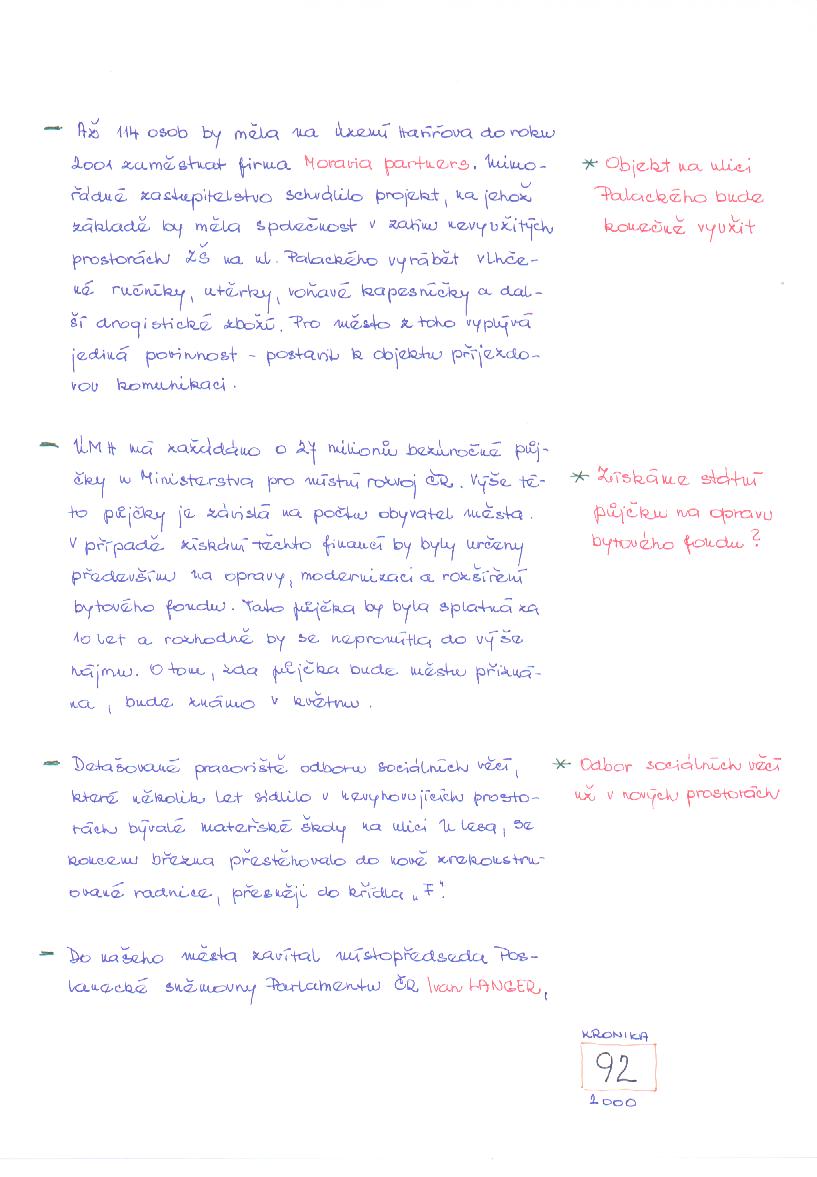 - Až 114 osob by měla na území Havířova do roku
2001 zaměstnat firma Moravia partners. Mimo-
řádné zastupitelstvo schválilo projekt, na jehož
základě by měla společnost v zatím nevyužitých
prostorách ZŠ na ul. Palackého vyrábět vlhče-
né ručníky, utěrky, voňavé kapesníčky a dal-
ší drogistické zboží. Pro město z toho vyplývá
jediná povinnost - postavit k objektu příjezdo-
vou komunikaci.
* Objekt na ulici
Palackého bude
konečně využit
- ÚMH má zažádáno o 27 milionů bezúročné půj-
čky u Ministerstva pro místní rozvoj ČR. Výše té-
to půjčky je závislá na počtu obyvatel města.
V případě získání těchto financí by byly určeny
především na opravy, modernizaci a rozšíření
bytového fondu. Tato půjčka by byla splatná za
10 let a rozhodně by se nepromítla do výše
nájmu. O tom, zda půjčka bude městu přizná-
na, bude známo v květnu.
* Získáme státní
půjčku na opravu
bytového fondu?
- Detašované pracoviště odboru sociálních věcí,
které několik let sídlilo v nevyhovujících prosto-
rách bývalé mateřské školy na ulici U lesa, se
koncem března přestěhovalo do nově zrekonstru-
ované radnice, přesněji do křídla „F".
* Odbor sociálních věcí
už v nových prostorách
- Do našeho města zavítal místopředseda Pos-
lanecké sněmovny Parlamentu ČR Ivan LANGER,
KRONIKA
92
2000